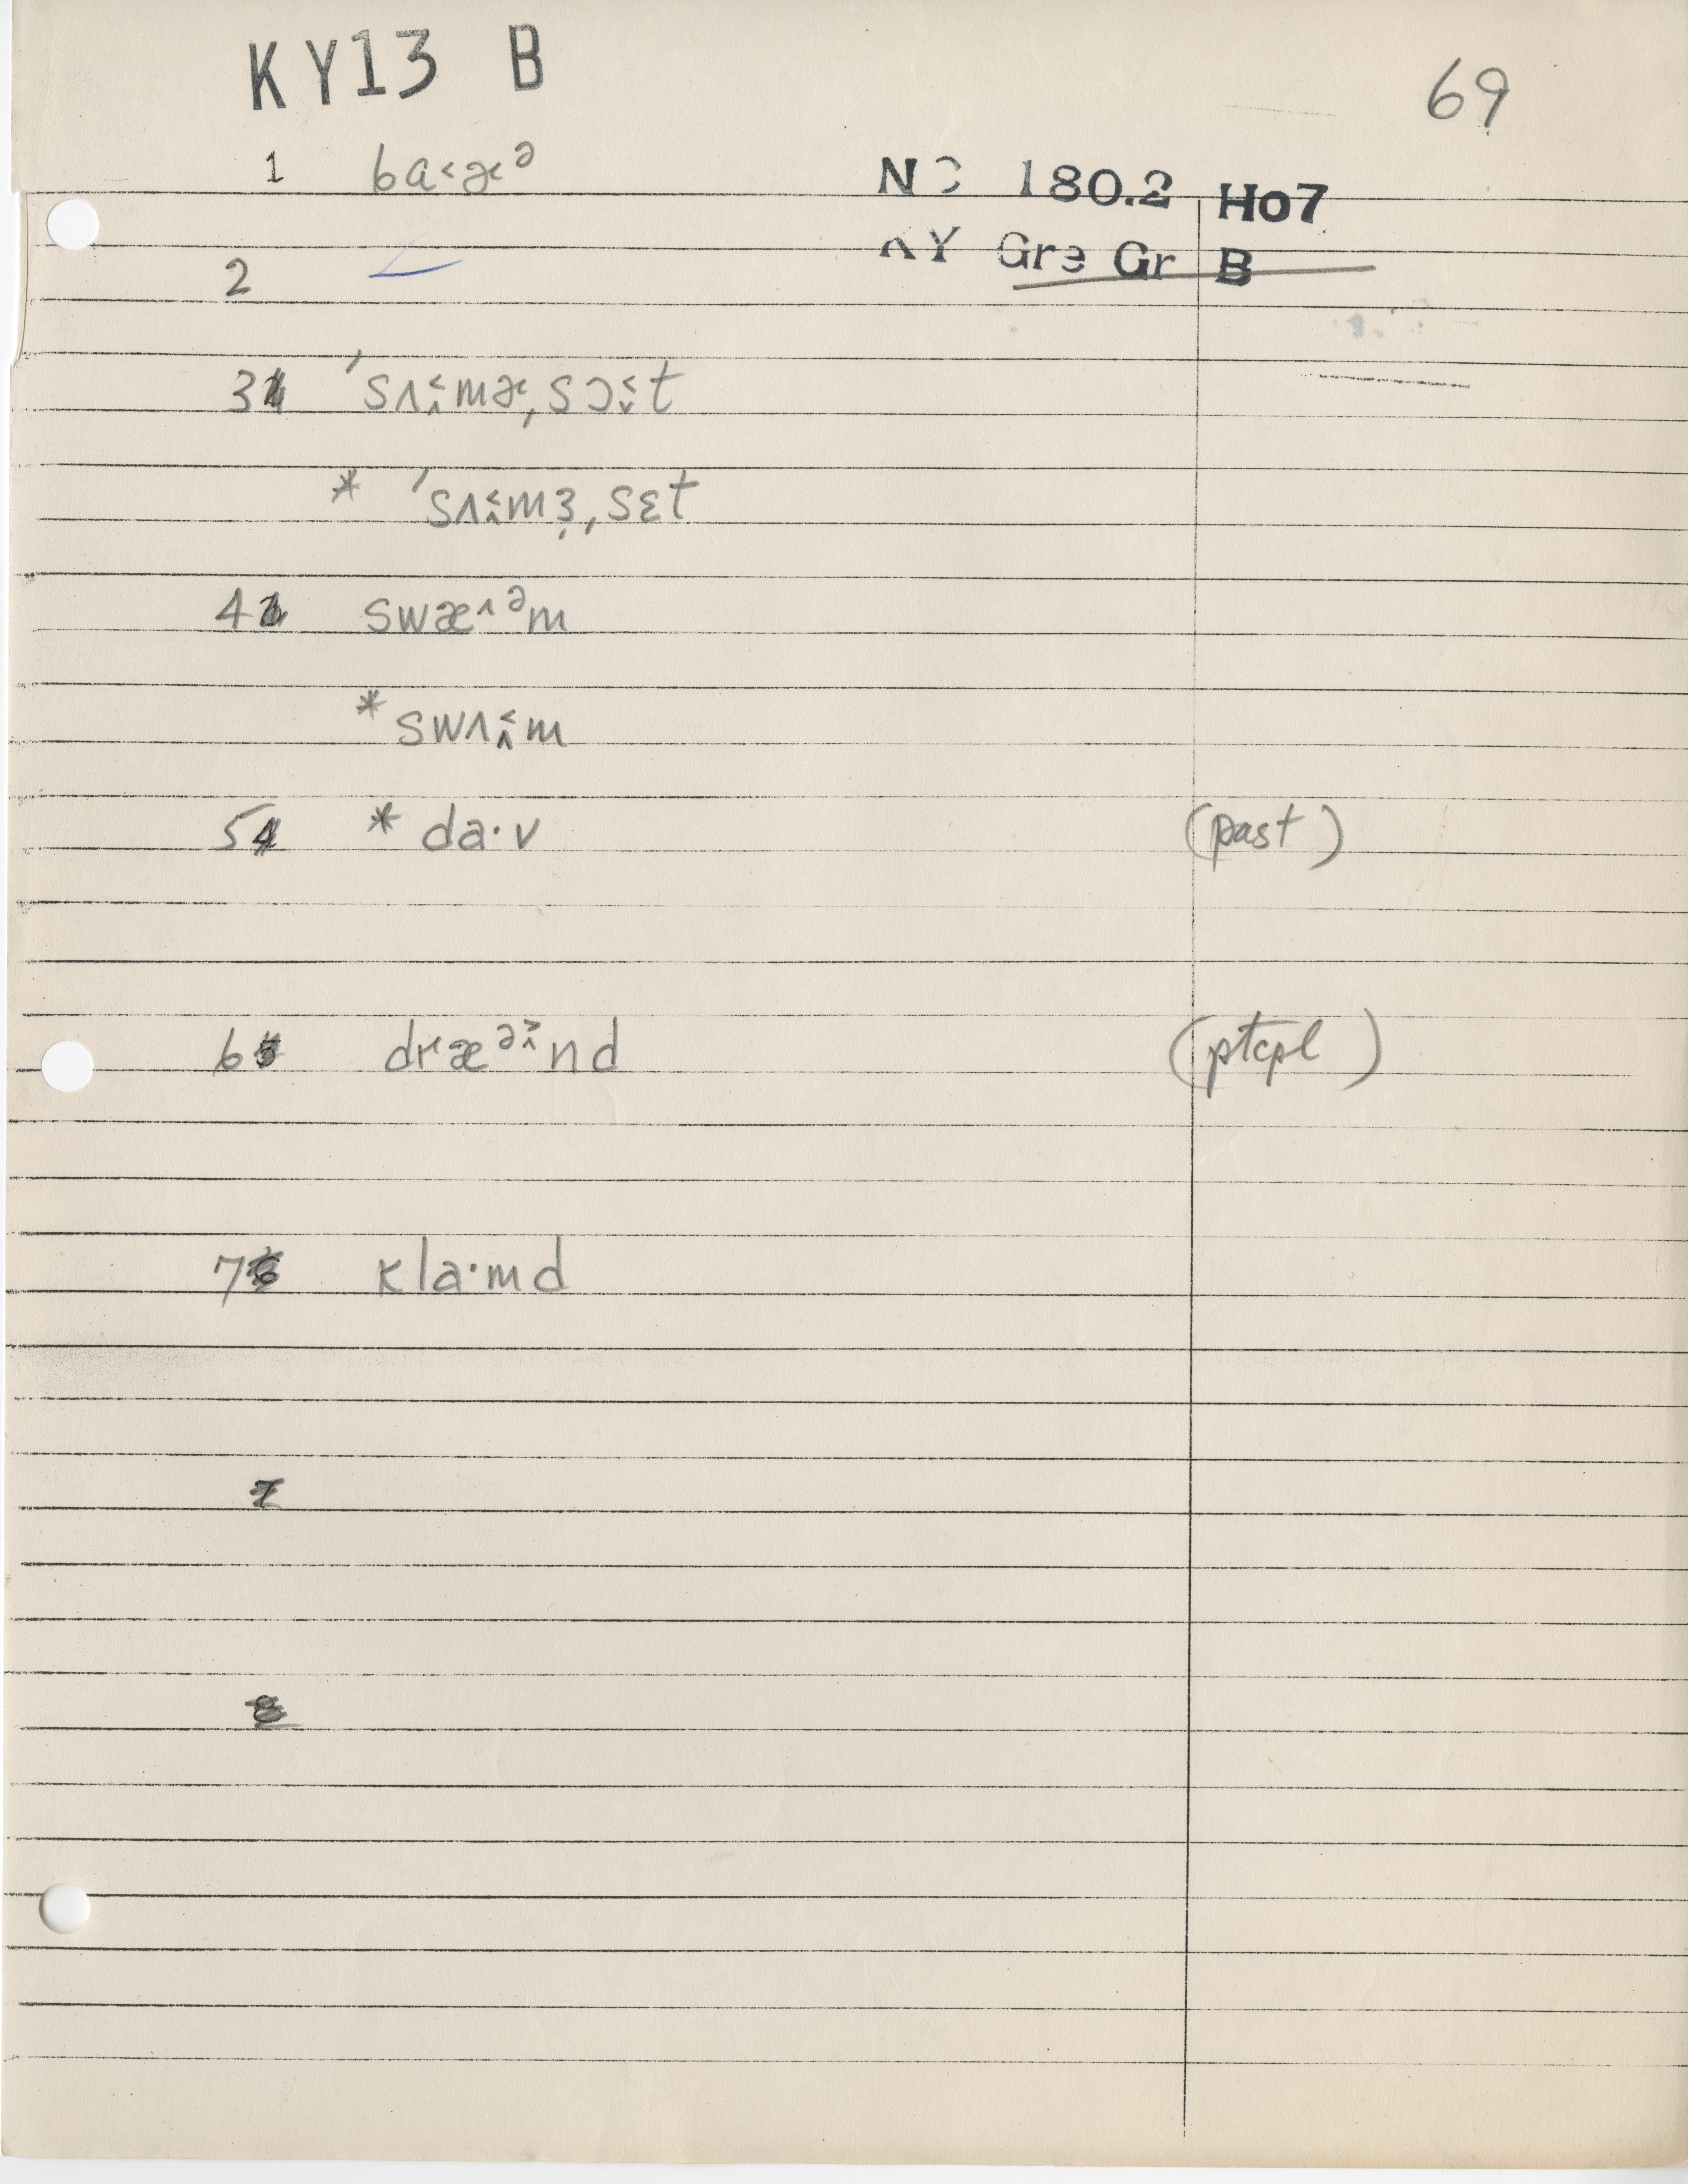 KY13 B
69
1 ba˂ɚᵊ
NC 180.2 Ho7
KY Gre Gr B
2 —
3 ˈsʌ˂˄mɚˌsɔ˂˅t
* ˈsʌ˂˄mɜˌsɛt
4 swæ˄ᵊm
* swʌ˂˄m
5 * da·v (past)
6 dræᵊɪ̂˃nd (ptcpl)
7 kla·md
7
8